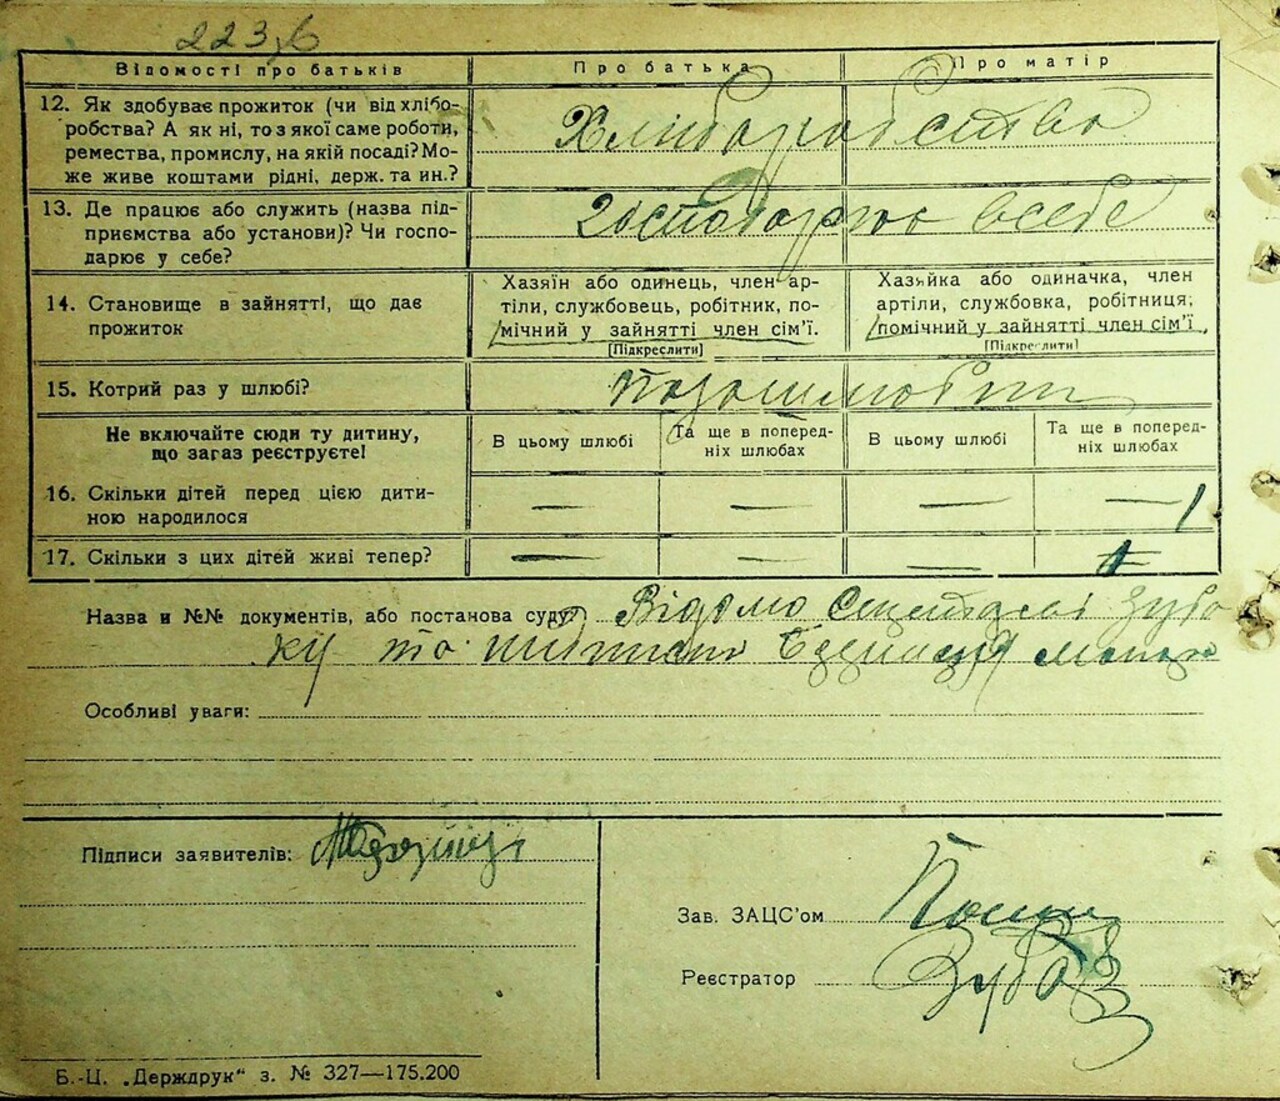 223,б
Відомості про батьків
Про батька
Про матір
12. Як здобуває прожиток (чи від хлібо-
робства? А як ні, то з якої саме роботи,
ремества, промислу, на якій посаді? Мо-
же живе коштами рідні, держ. та ин.?
Хліборобство
13. Де працює або служить (назва під-
приємства або установи)? Чи госпо-
дарює у себе?
господарює в себе
14. Становище в зайнятті, що дає
прожиток
Хазяїн або одинець, член ар-
тіли, службовець, робітник, по-
мічний у зайнятті член сім'ї.
[Підкреслити]
Хазяйка або одиначка, член
артіли, службовка, робітниця,
помічний у зайнятті член сім'ї
[Підкреслити]
15. Котрий раз у шлюбі?
Не включайте сюди ту дитину,
що загаз реєструєте!
В цьому шлюбі
Та ще в поперед-
ніх шлюбах
В цьому шлюбі
Та ще в поперед-
ніх шлюбах
16. Скільки дітей перед цією дити-
ною народилося
— — — — 1
17. Скільки з цих дітей живі тепер?
— — — 1
Назва и №№ документів, або постанова суду? Відомо Секретарі Зуба
ку та
Особливі уваги:
Підписи заявителів:
Зав. ЗАЦС'ом
Реєстратор
Б.-Ц. „Держдрук" з. № 327—175.200